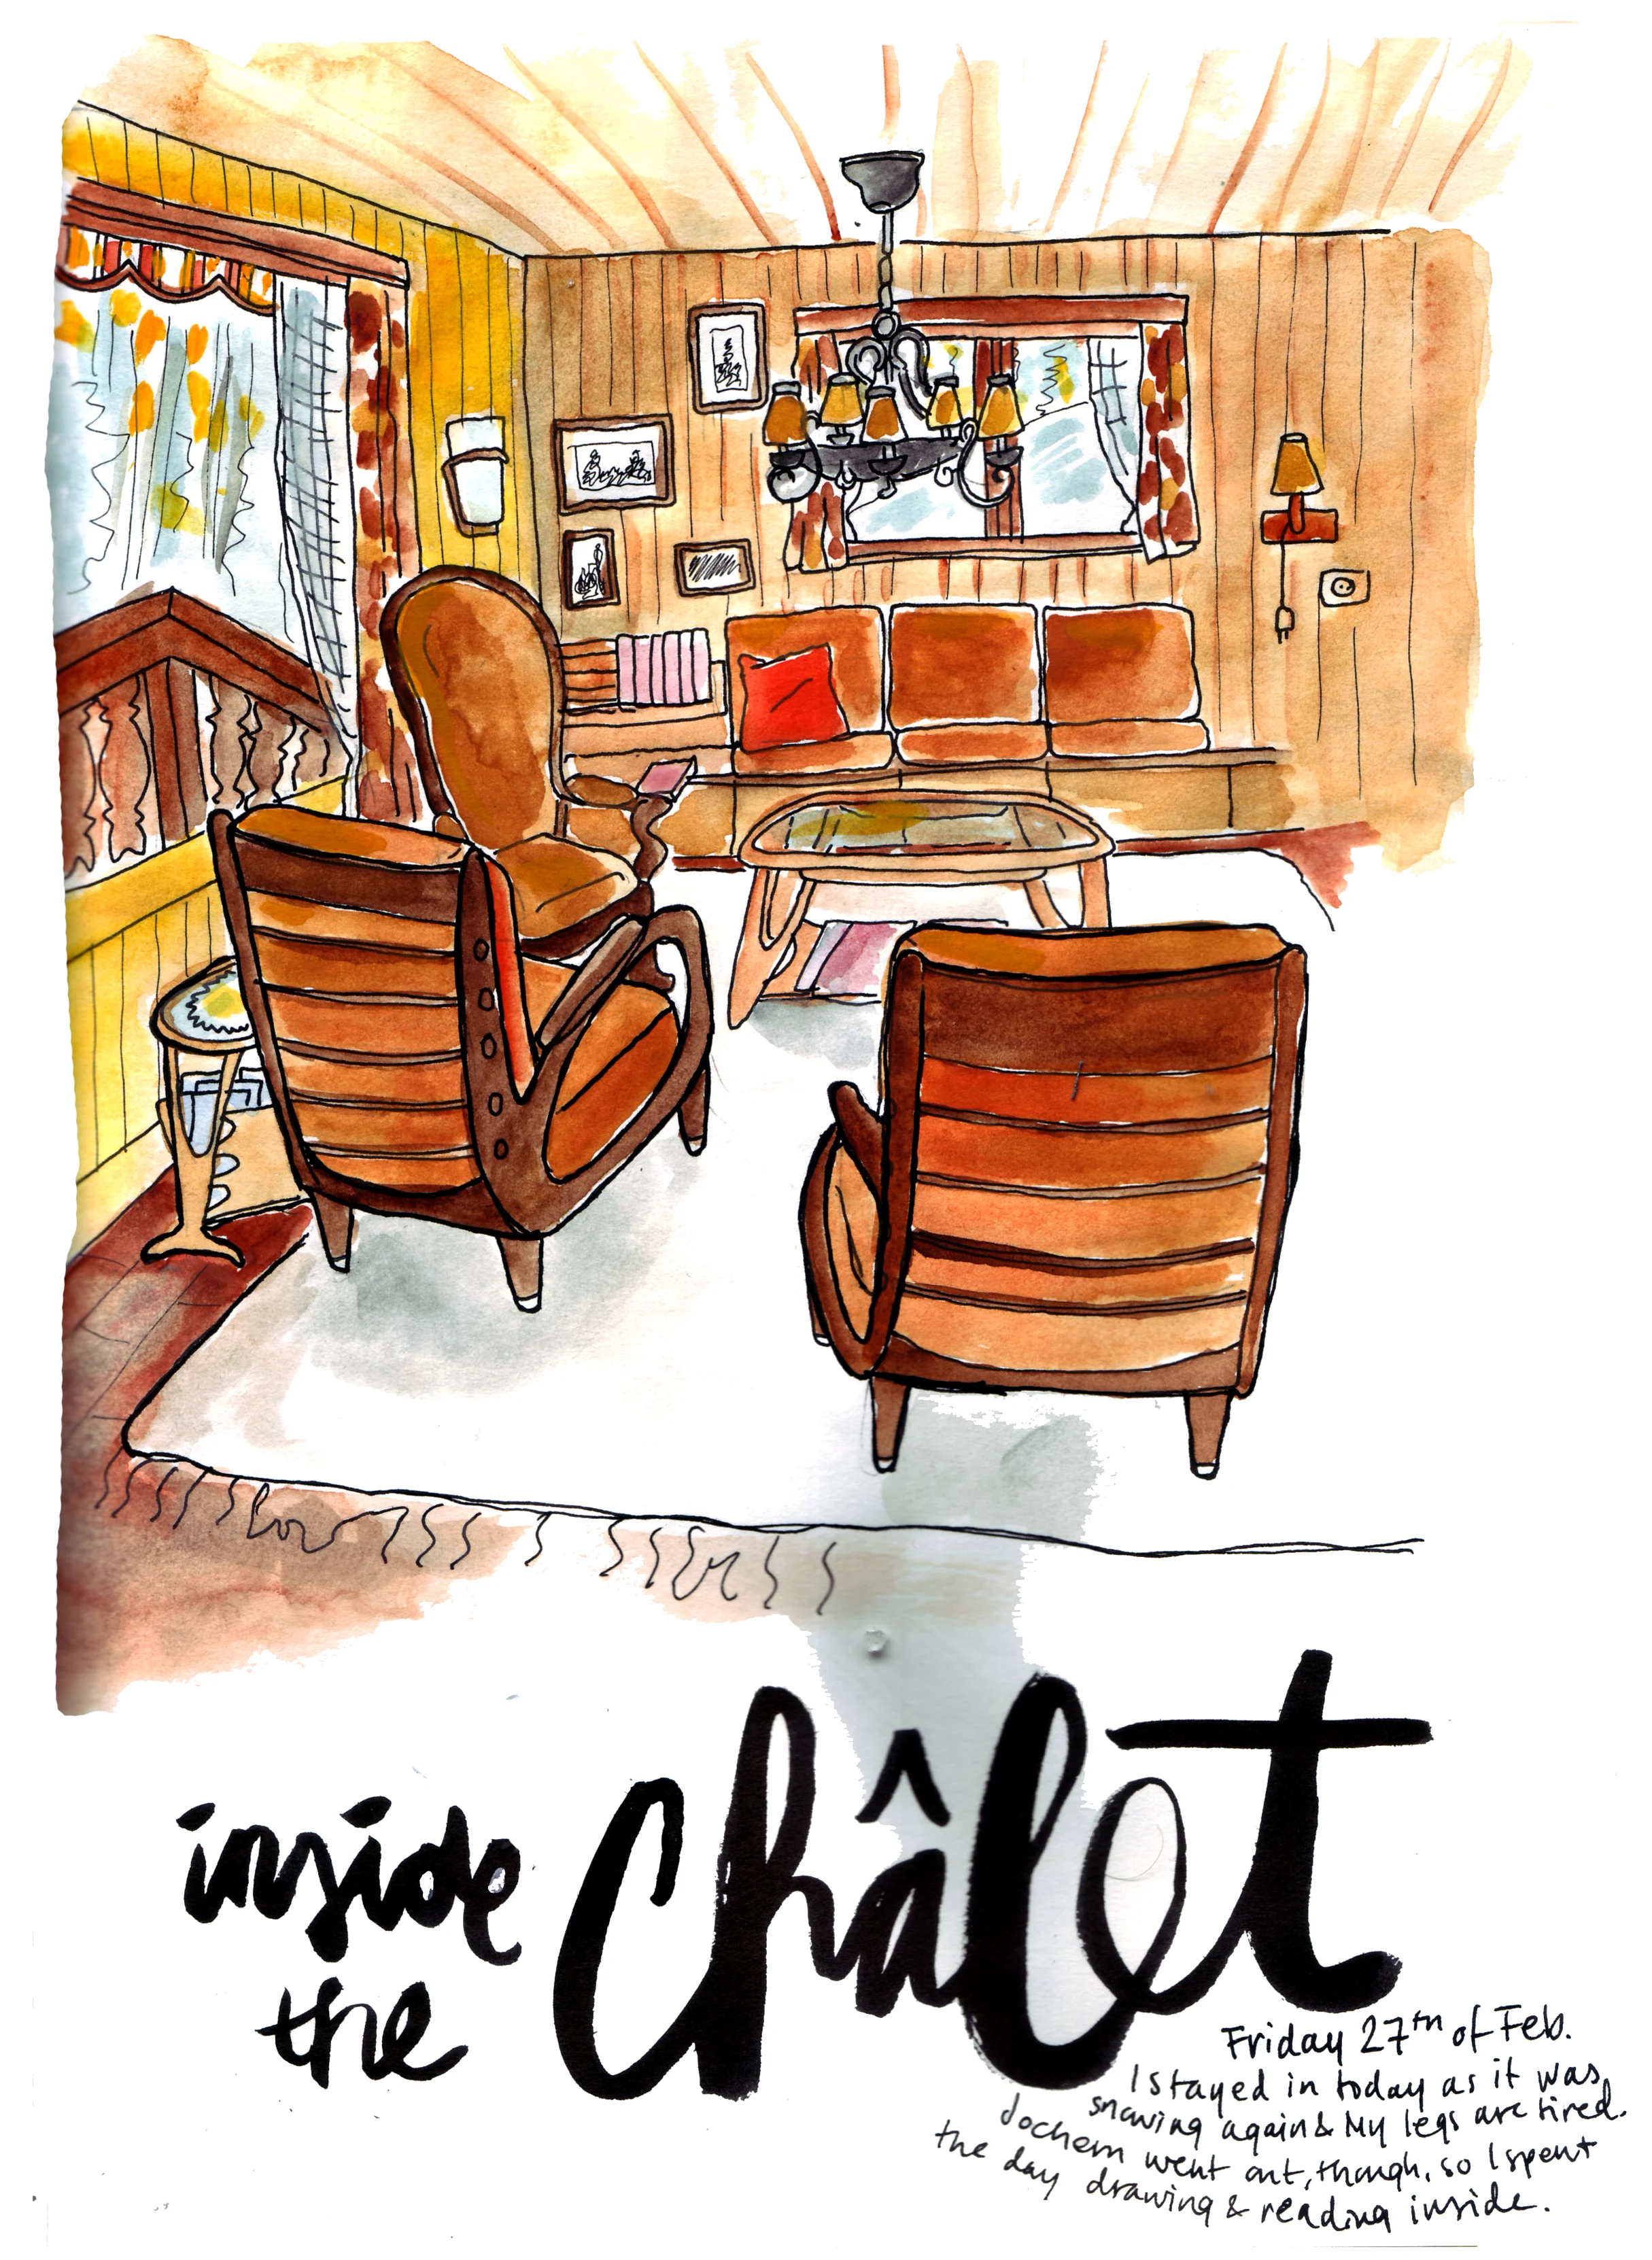 inside
the
Châlet
Friday 27th of Feb.
I stayed in today as it was
snowing again & My legs are tired.
Jochem went out, though, so I spent
the day drawing & reading inside.